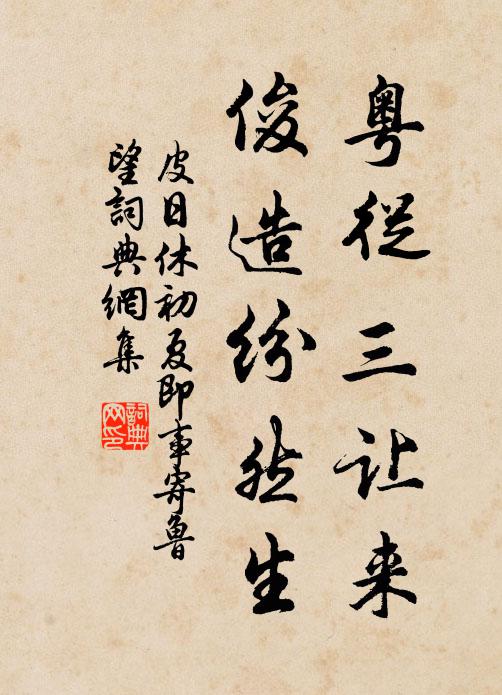 粤從三让来
俊造纷然生
皮日休初夏即事寄鲁
望詞典網集
詞典网印